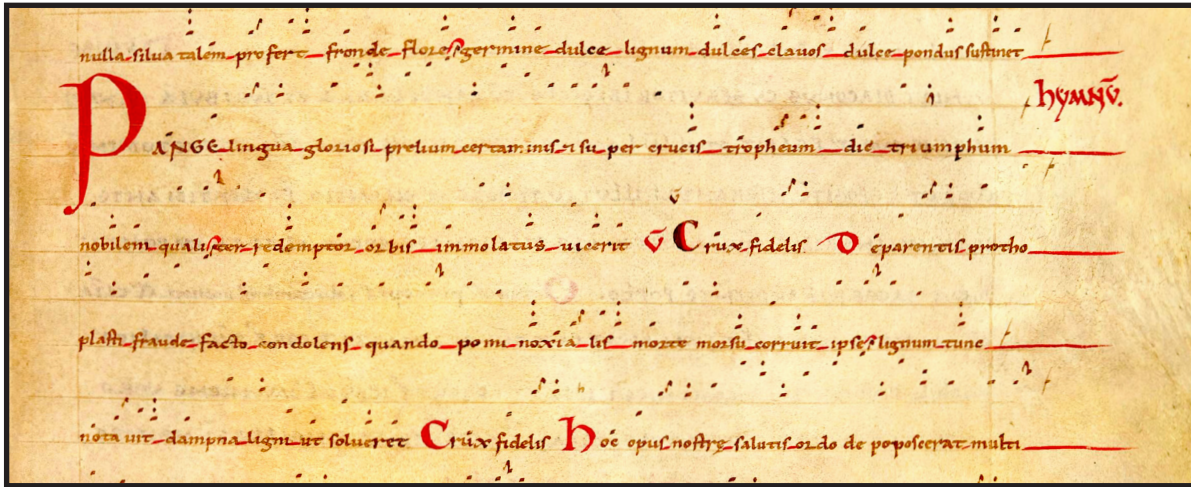 nulla silua talem profert fronde flore germine dulce lignum dulces clauos dulce pondus sustinet
hYMNŪ.
PANGE lingua gloriosi prelium certaminis & super crucis tropheum dic triumphum
nobilem qualiter redemptor orbis immolatus uicerit V̄ Crux fidelis. Deparentis protho
plasti fraude facto condolens quando pomi noxialis morte morsu corruit ipse lignum tunc
notauit dampna ligni ut solueret Crux fidelis hoc opus nostrę salutis ordo depoposcerat multi